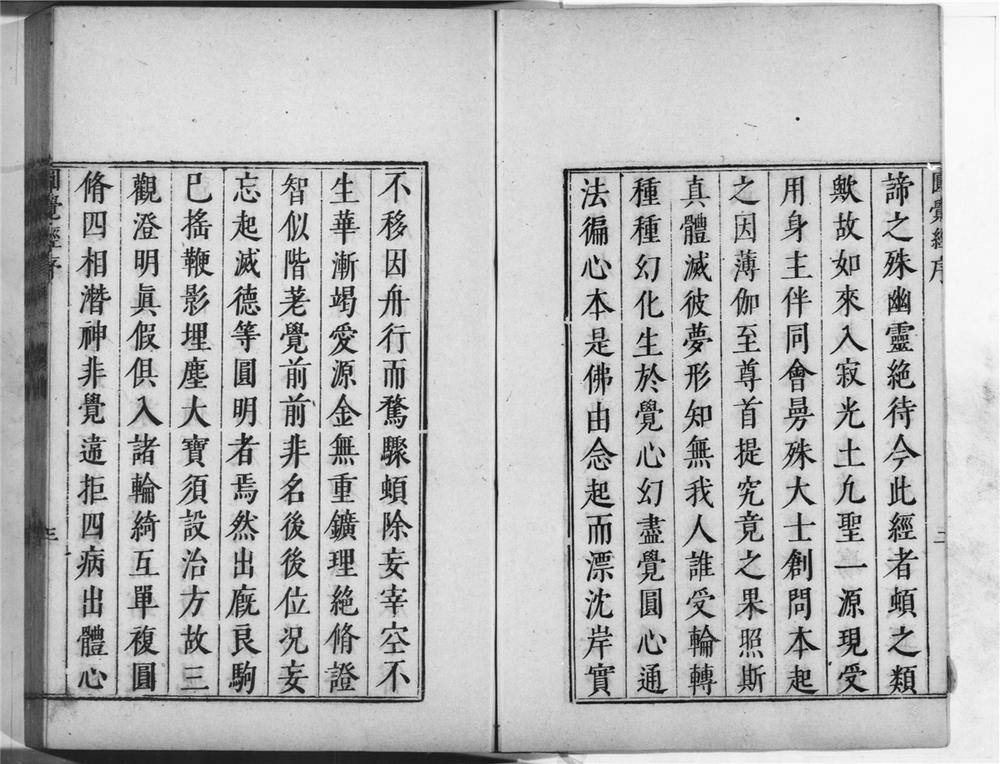 圓覺經序
諦之殊幽靈絶待今此經者頓之類
歟故如來入寂光土九聖一源現受
用身主伴同會曼殊大士創問本起
之因薄伽至尊首提究竟之果照斯
真體滅彼夢形知無我人誰受輪轉
種種幻化生於覺心幻盡覺圓心通
法徧心本是佛由念起而漂沈岸實
不移因舟行而騖驟頓除妄宰空不
生華漸竭愛源金無重鑛理絶脩證
智似階荖覺前前非名後後位況妄
忘起滅德等圓明者焉然出廐良駒
巳搖鞭影埋塵大寶須設治方故三
觀澄明眞假俱入諸輪綺互單複圓
脩四相潛神非覺遠拒四病出體心
圓覺經序
三